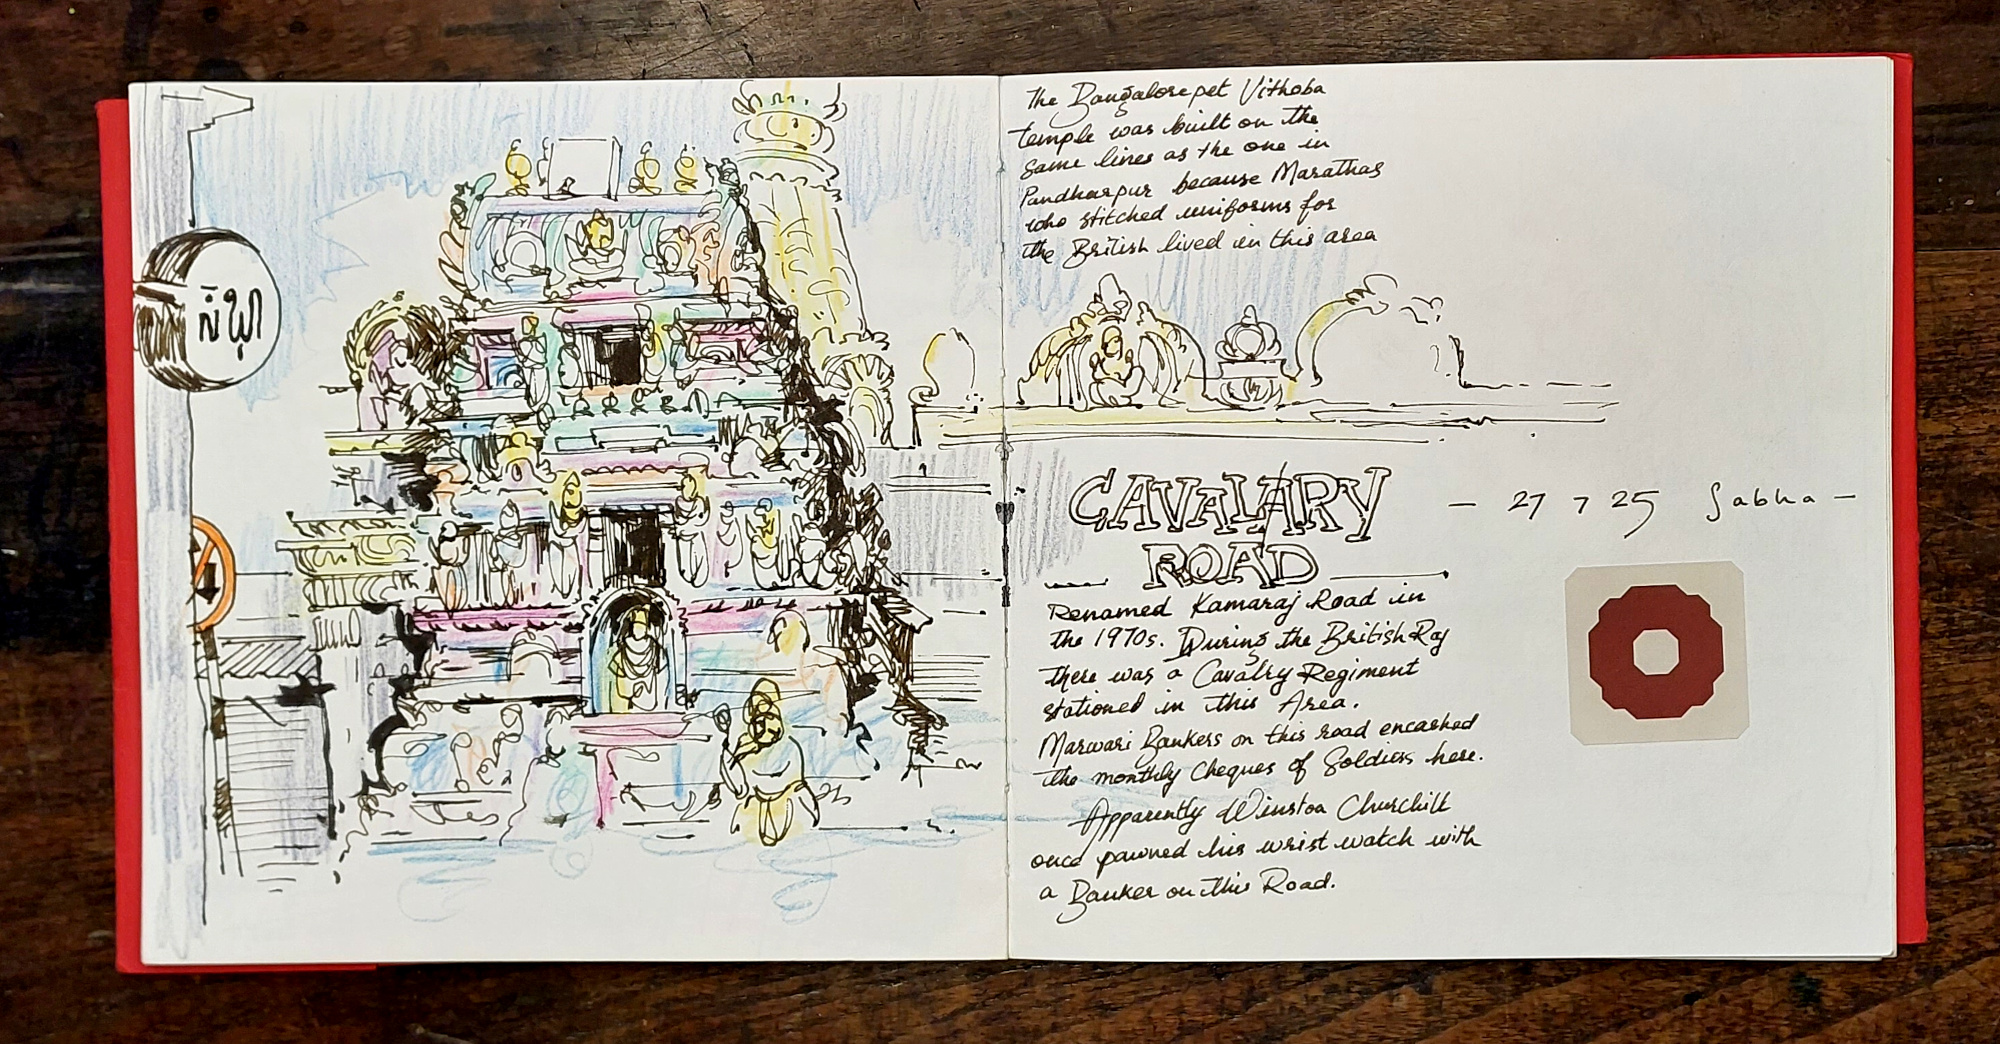 The Bangalorepet Vithoba
temple was built on the
same lines as the one in
Pandharpur because Marathas
who stitched uniforms for
the British lived in this area
CAVALARY
ROAD
- 27 7 25 Sabha -
Renamed Kamaraj Road in
the 1970s. During the British Raj
there was a Cavalry Regiment
stationed in this Area.
Marwari Bankers on this road encashed
the monthly Cheques of Soldiers here.
Apparently Winston Churchill
once pawned his wrist watch with
a Banker on this Road.